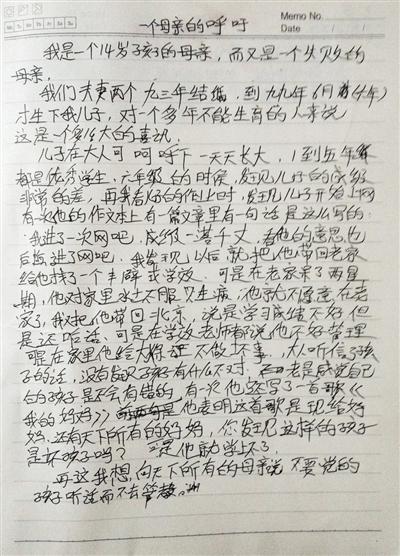 Memo No.
Date
一个母亲的呼吁
我是一个14岁孩子的母亲,而又是一个失败的
母亲。
我们夫妻两个九三年结婚,到九九年6月
才生下我儿子,对一个多年不能生育的人来说
这是一个多么大的喜讯。
儿子在大人呵呵呼下一天天长大,1到五年级
都是优秀学生,六年级的时候,发现儿子的成绩
非常的差,再我看他的作业时,发现儿子开始上网
有次他的作文本上有一篇文章里有一句话是这么写的:
我进了一次网吧,成绩一落千丈,看他的意思也
后悔进了网吧。我发现以后就把他带回老家
给他找了一个学校。可是在老家呆了两星
期,他对家里水土不服只生病,他就不愿意在老
家了,我又把他带回北京,说是学习成绩不好但
是还哈,可是在学校老师都说他不好管理
可是在家里他给大人保证不做坏事,大人听信了孩
子的话,没有发现孩子有什么不对,老是感觉自己
的孩子是不会有错的,有次他还写了一首歌《
我的好妈》他表明这首歌是现给妈
妈,还有天下所有的妈妈,你发现这样的孩子
是坏孩子吗? 他就学坏了。
再这我想向天下所有的母亲说不要觉的
孩子听话而不去管教。